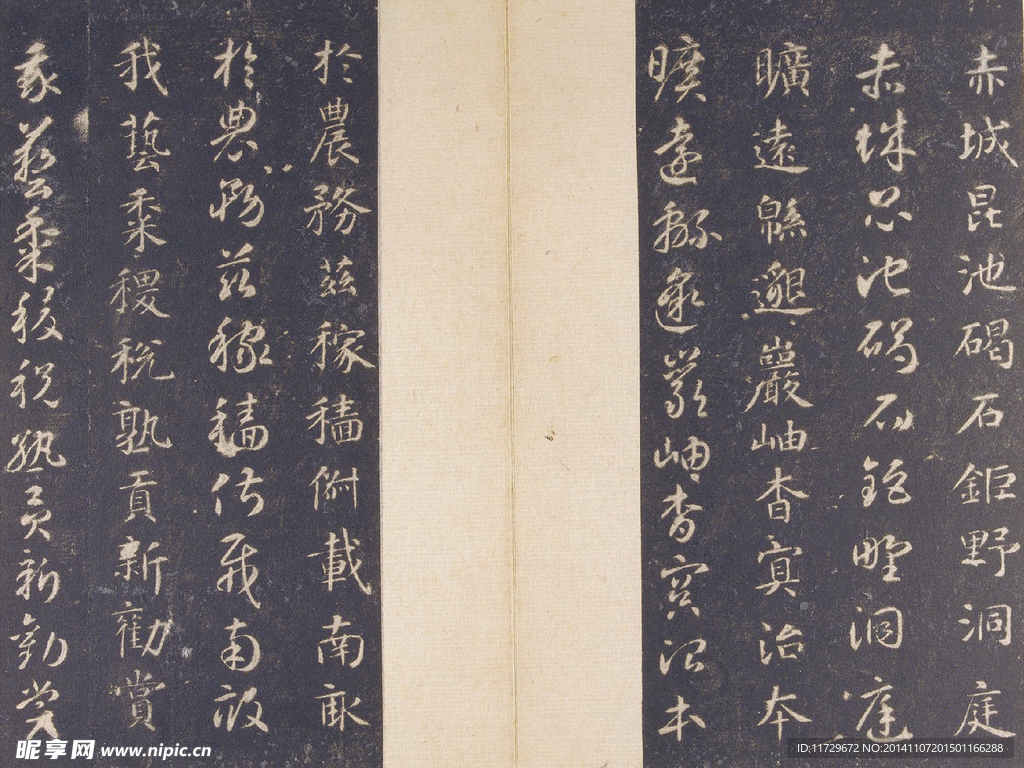 赤城昆池碣石鉅野洞庭
赤城昆池碣石鉅野洞庭
曠遠緜邈巖岫杳冥治本
曠遠緜邈巖岫杳冥治本
於農務茲稼穡俶載南畝
於農務茲稼穡俶載南畝
我藝黍稷稅熟貢新勸賞
我藝黍稷稅熟貢新勸賞
昵享网 www.nipic.cn
ID:11729672 NO:20141107201501166288